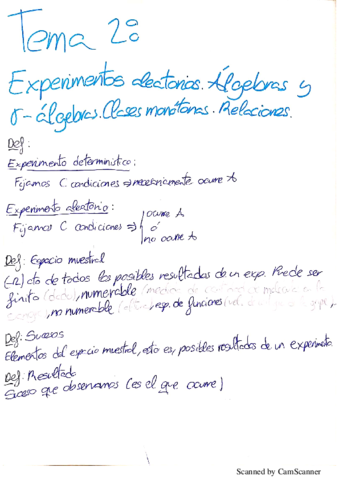 Tema 2:
Experimentos aleatorios. Álgebras y
σ-álgebras. Clases monótonas. Relaciones.
Def:
Experimento determinístico:
Fijamos C condiciones ⇒ necesariamente ocurre A
Experimento aleatorio:
ocurre A
Fijamos C condiciones ⇒ ó
no ocurre A
Def: Espacio muestral
(Ω) cto de todos los posibles resultados de un exp. Puede ser
finito (dado), numerable
no numerable, esp. de funciones
Def: Sucesos
Elementos del espacio muestral, esto es, posibles resultados de un experimento
Def: Resultado
Suceso que observamos (es el que ocurre)
Scanned by CamScanner